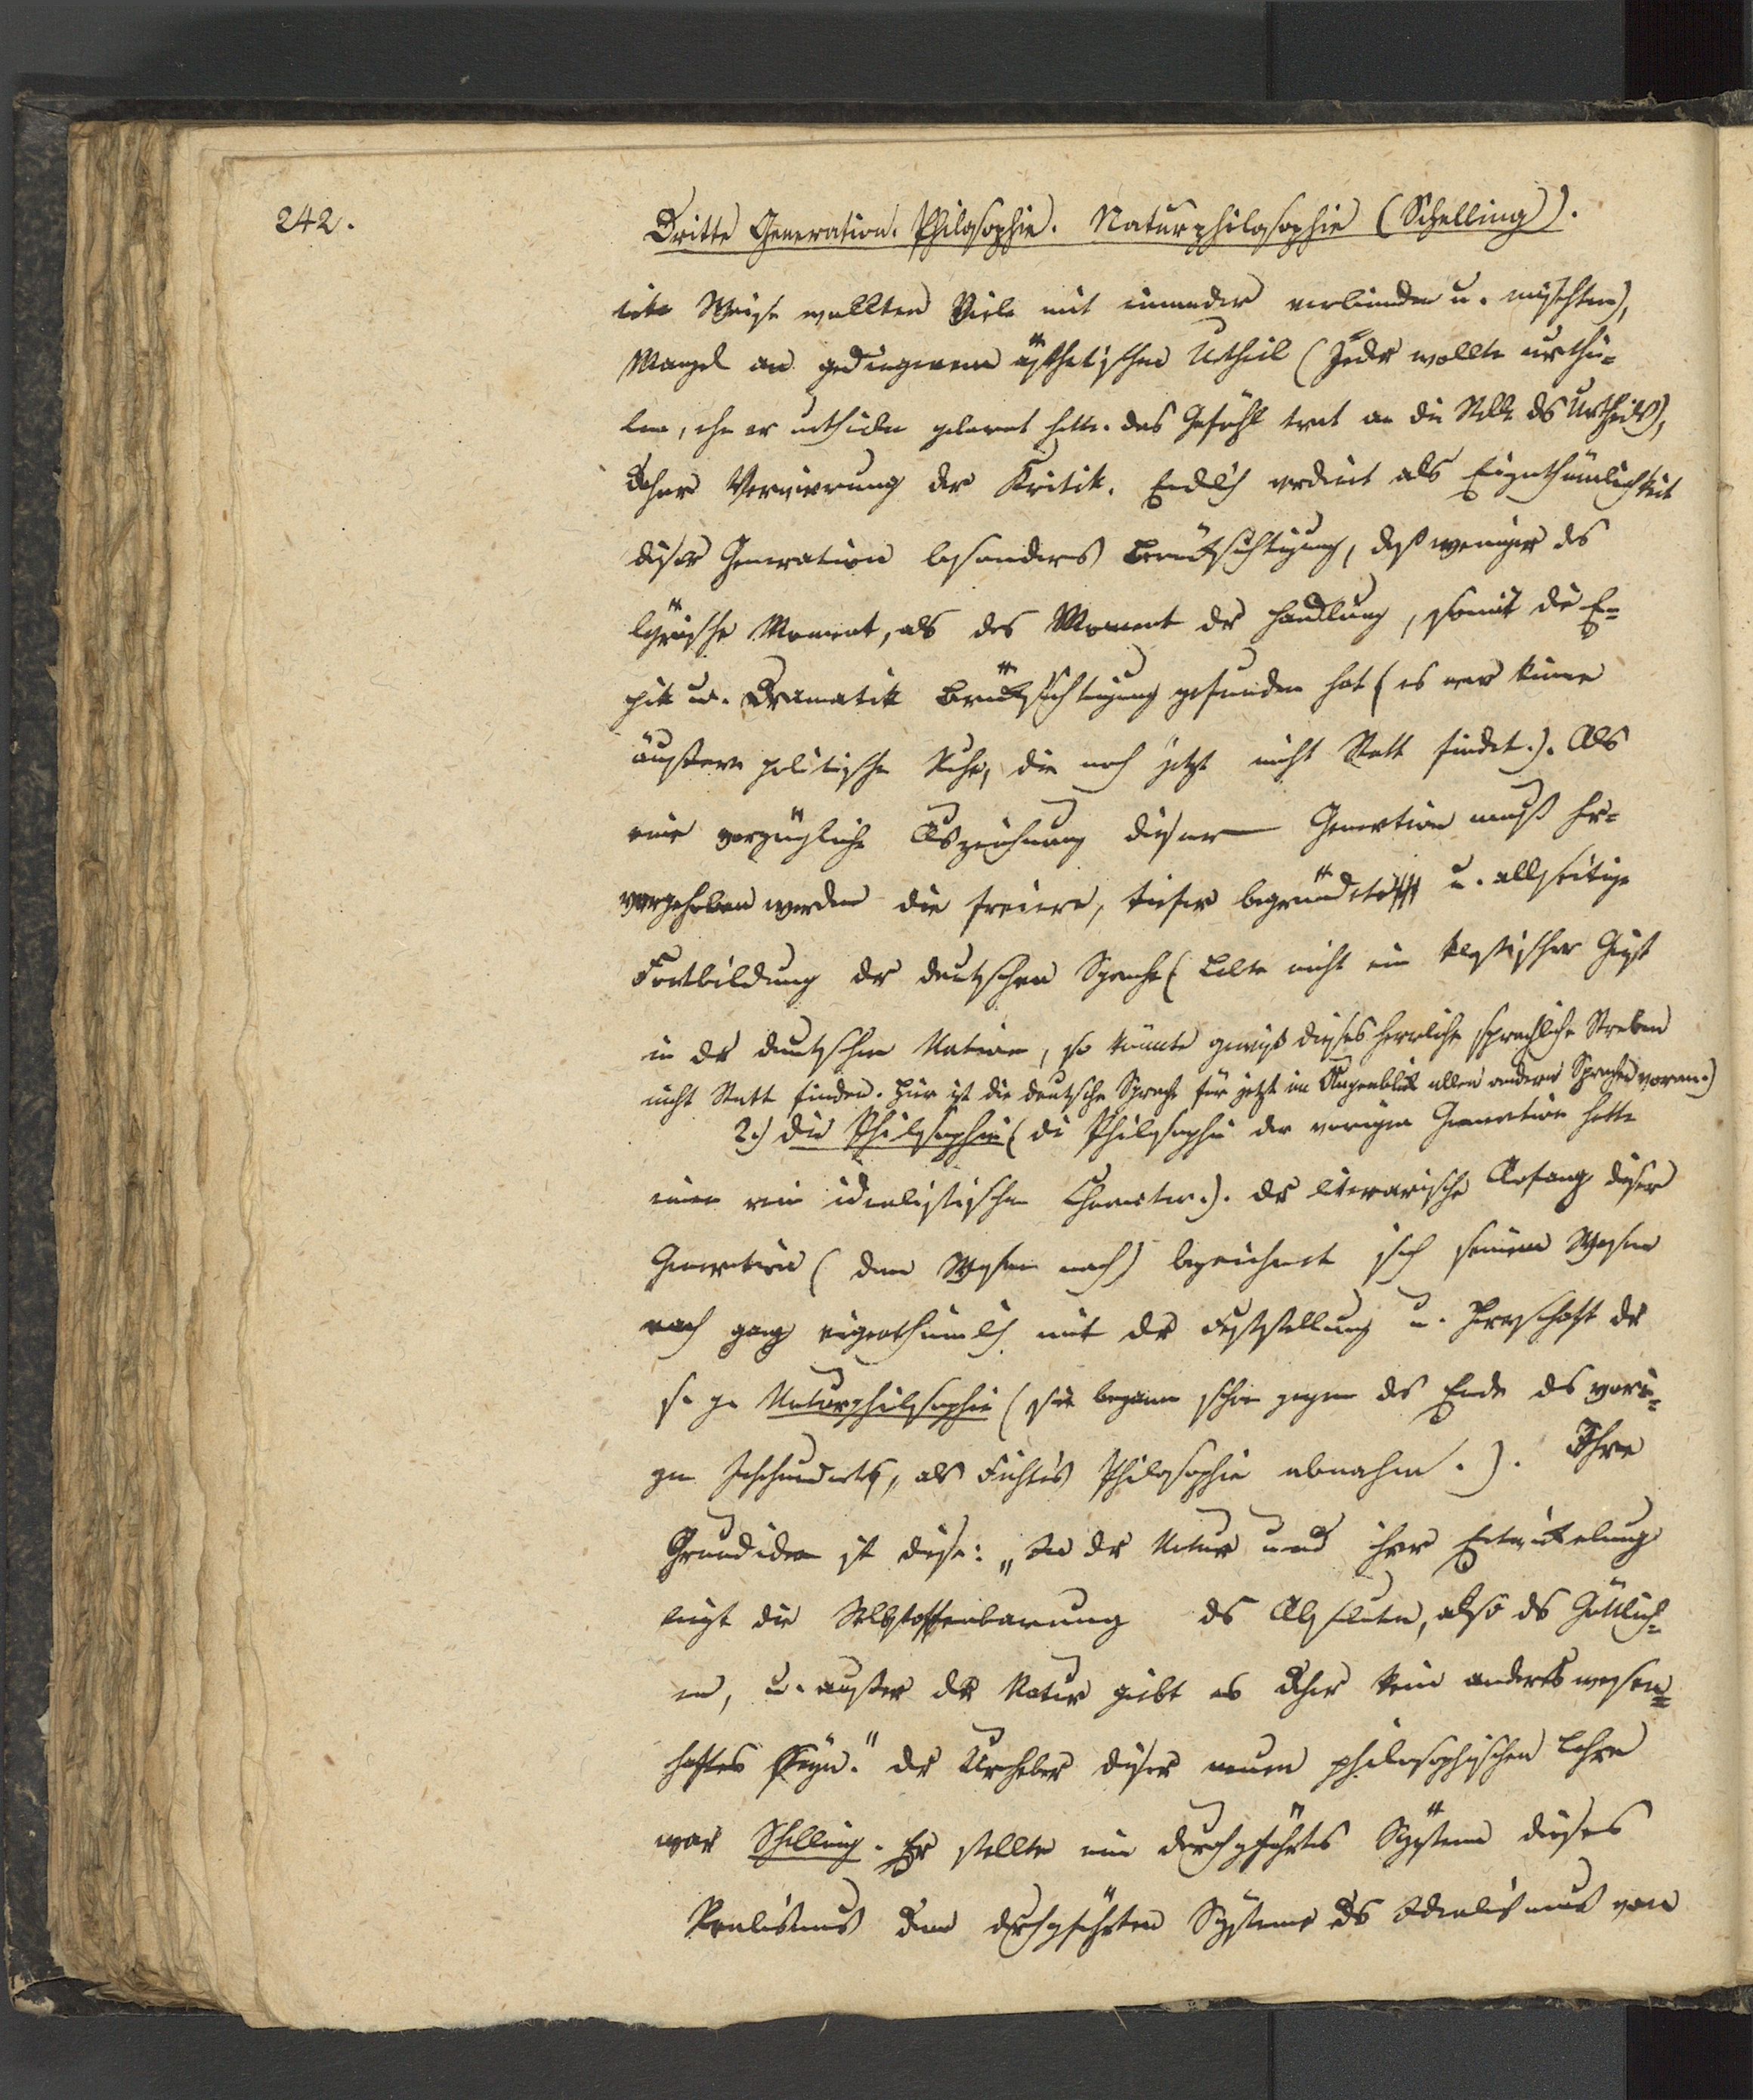 242.
Dritte Generation. Philosophie. Naturphilosophie (Schelling).
Weise wollten Viele mit einander verbinden u. mischten),
Mangel an gediegenem ästhetischen Urtheil (Jeder wollte urthei=
len, ehe er urtheilen gelernt hatte. das Gefühl trat an die Stelle des Urtheils),
daher Verwirrung der Kritik. Endlich verdient als Eigenthümlichkeit
dieser Generation besonders Berücksichtigung, daß weniger das
lyrische Moment, als das Moment der Handlung, somit die E=
pik u. Dramatik Berücksichtigung gefunden hat (es war keine
äußere politische Ruhe, die noch jetzt nicht Statt findet.). Als
eine vorzügliche Auszeichnung dieser Generation muß her=
vorgehoben werden die freiere, tiefer begründete u. allseitige
Fortbildung der deutschen Sprache (Lebte nicht ein klassischer Geist
in der deutschen Nation, so könnte gewiß dieses herrliche sprachliche Streben
nicht Statt finden. Hier ist die deutsche Sprache für jetzt im Augenblick allen andern Sprachen voran.)
2.) die Philosophie (die Philosophie der vorigen Generation hatte
einen rein idealistischen Charakter.). der literarische Anfang dieser
Generation (dem Wesen nach) bezeichnet sich seinem Wesen
nach ganz eigenthümlich mit der Feststellung u. Herrschaft der
so ge Naturphilosophie (sie begann schon gegen das Ende des vori=
gen Jahrhunderts, als Fichte's Philosophie abnahm.). Ihre
Grundidee ist diese: „In der Natur und ihrer Entwickelung
liegt die Selbstoffenbarung des Absoluten, also des Göttlich=
en, u. außer der Natur giebt es daher kein anderes wesen=
haftes Seyn." der Urheber dieser neuen philosophischen Lehre
war Schelling. Er stellte ein durchgeführtes System dieses
Realismus dem durchgeführten Systeme des Idealismus von